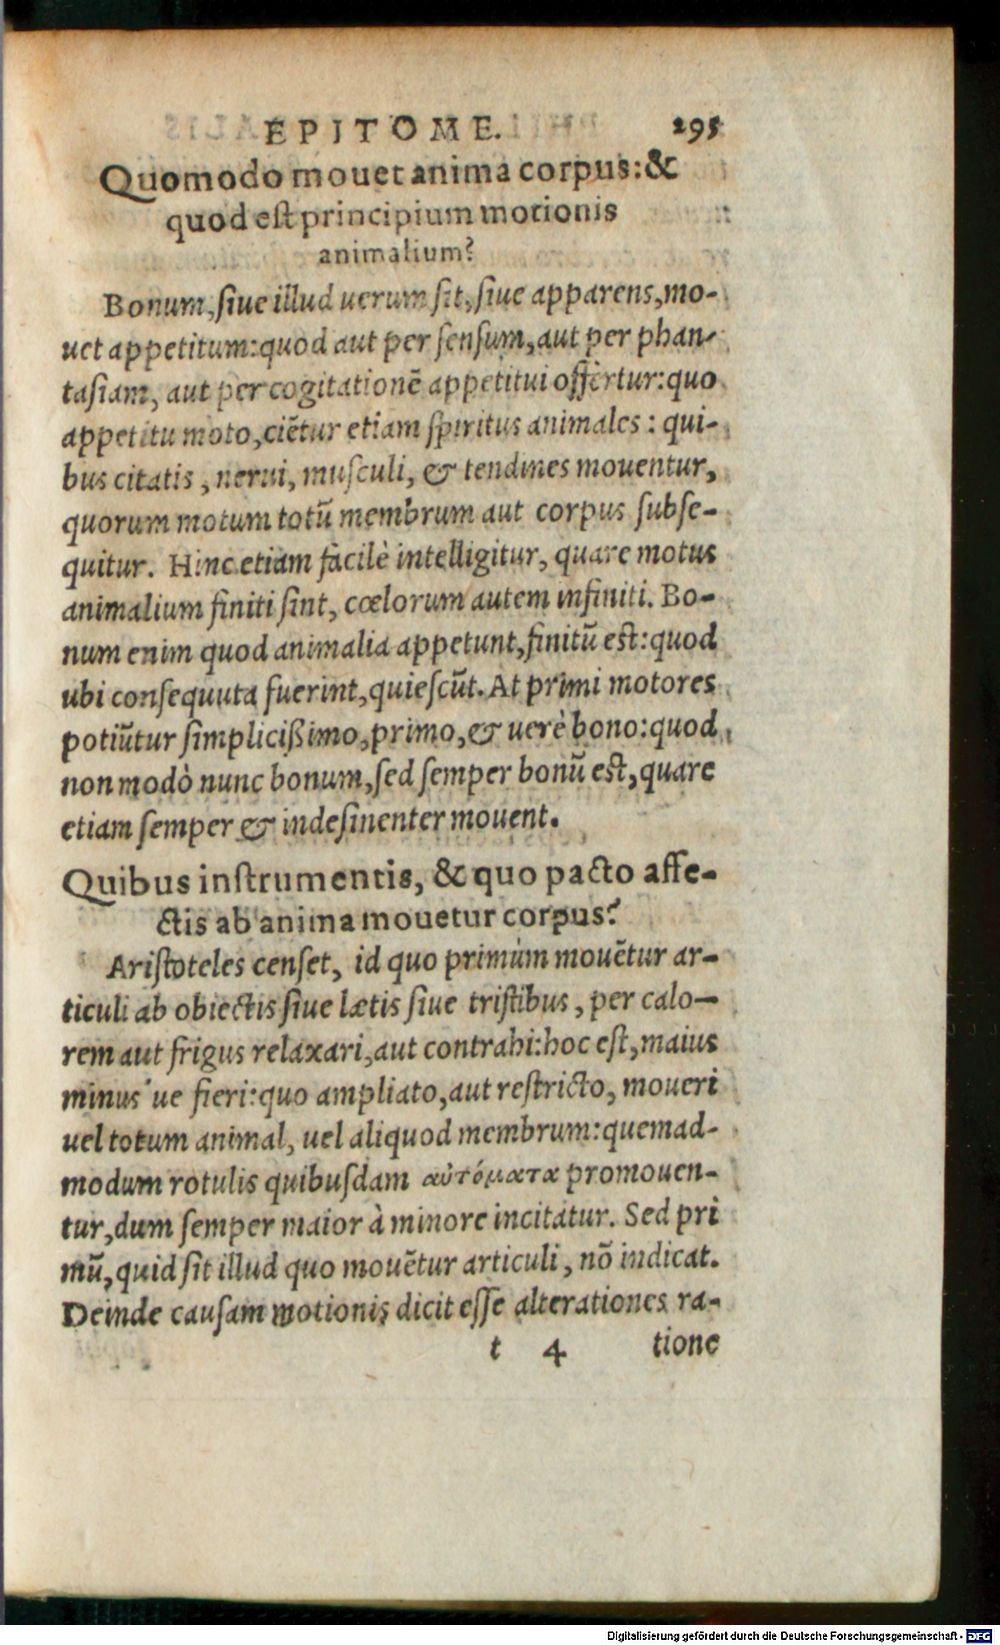 EPITOME. 295
Quomodo mouet anima corpus: &
quod est principium motionis
animalium?
Bonum, siue illud uerum sit, siue apparens, mo-
uet appetitum: quod aut per sensum, aut per phan-
tasiam, aut per cogitationē appetitui offertur: quo
appetitu moto, ciētur etiam spiritus animales: qui-
bus citatis, nerui, musculi, & tendines mouentur,
quorum motum totū membrum aut corpus subse-
quitur. Hinc etiam facilè intelligitur, quare motus
animalium finiti sint, cœlorum autem infiniti. Bo-
num enim quod animalia appetunt, finitū est: quod
ubi consequuta fuerint, quiescūt. At primi motores
potiūtur simplicißimo, primo, & uerè bono: quod
non modò nunc bonum, sed semper bonū est, quare
etiam semper & indesinenter mouent.
Quibus instrumentis, & quo pacto affe-
ctis ab anima mouetur corpus?
Aristoteles censet, id quo primùm mouētur ar-
ticuli ab obiectis siue lætis siue tristibus, per calo-
rem aut frigus relaxari, aut contrahi: hoc est, maius
minus´ue fieri: quo ampliato, aut restricto, moueri
uel totum animal, uel aliquod membrum: quemad-
modum rotulis quibusdam αὐτόματα promouen-
tur, dum semper maior à minore incitatur. Sed pri
mū, quid sit illud quo mouētur articuli, nō indicat.
Deinde causam motionis dicit esse alterationes ra-
t 4 tione
Digitalisierung gefördert durch die Deutsche Forschungsgemeinschaft - DFG